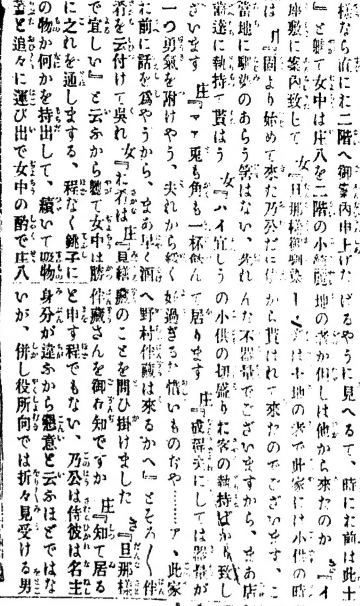 様なら直に二階へ御案内申上げた
』と軈て女中は庄八を二階の小綺麗
座敷に案内致して 女『旦那様御馴染
は『固より始めて來た乃公だに
當地に馴染のあらう筈はない、夫れ
に執持て貰はう 女『ハイ宜しう
ざいます 庄『マア兎も角も一杯飲ん
一つ勇氣を附けやう、夫れから緩く
に前に話を為やうから、まあ早く酒
肴を云付けて呉れ 女『お肴は 庄『見繕
で宜い』と云ふから軈て女中は勝
に之れを通しまする、程なく銚子に
の物か何かを持出して、續いて吸物
等と追々に運び出で女中の酌で庄八
げるやうに見へるて、時にお前は此土
地の者か但しは他から來たのか 『イ
は土地の者で此家には小供の時
から貰はれて來たのでございます、こ
んな不器量でございますから、まあ店
の小供の切盛りお客の執持ばかり致し
て居ります 庄『成程女にしては器量が
好過ぎた惜いものだや……ア、此家
へ野村伴藏は來るかへ』とそろ〳〵伴
藏のことを問ひ掛けました 『旦那様
伴藏さんを御存知ですか 庄『知て居る
と申す程でもない、乃公は侍彼は名主
身分が違ふから懇意と云ふほどではな
いが、併し役所向では折々見受ける男